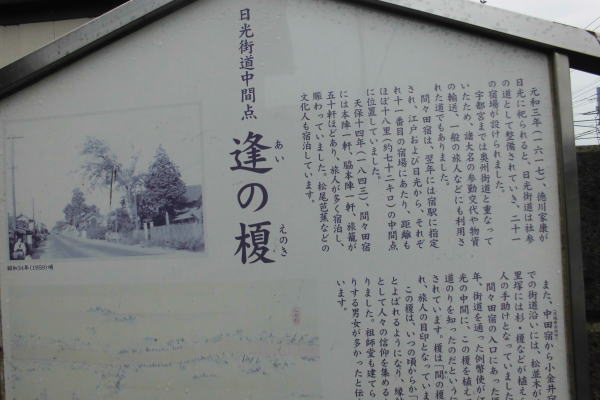 日光街道中間点
逢の榎
あい
えのき
元和三年(一六一七)、徳川家康が
日光に祀られると、日光街道は社参
の道として整備されていき、二十一
の宿場が設けられました。
宇都宮までは奥州街道と重なって
いたため、諸大名の参勤交代や物資
の輸送、一般の旅人などにも利用さ
れた道でもありました。
間々田宿は、翌年には宿駅に指定
され、江戸および日光から、それぞ
れ十一番目の宿場にあたり、距離も
ほぼ十八里(約七十二キロ)の中間点
に位置していました。
天保十四年(一八四三)、間々田宿
には本陣一軒、脇本陣一軒、旅籠が
五十軒ほどあり、旅人が多く宿泊し、
賑わっていました。松尾芭蕉などの
文化人も宿泊しています。
また、中田宿から小金井宿
での街道沿いには、松並木が
里塚には杉・榎などが植え
人の手助けとなっていました
間々田宿の入口にあった
年、街道を通った例幣使が江
光の中間に、この榎を植え
道のりを知ったのだという
されています。榎は「間の榎
れ、旅人の目印となっていま
この榎は、いつの頃からか「
とよばれるようになり、縁
として人々の信仰を集める
りました。祖師堂も建てら
りする男女が多かったと伝
います。
昭和34年(1959)頃